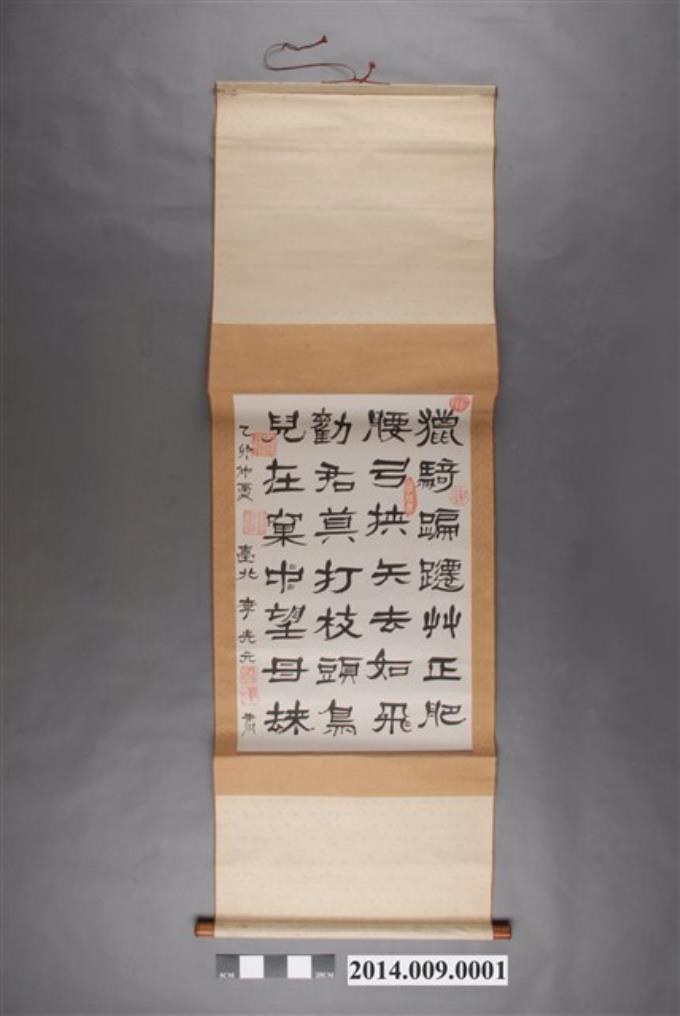 獵騎蹁躚艸正肥
腰弓挾矢去如飛
勸君莫打枝頭鳥
兒在窠中望母歸
乙卯仲夏 臺北 李光元
2014.009.0001